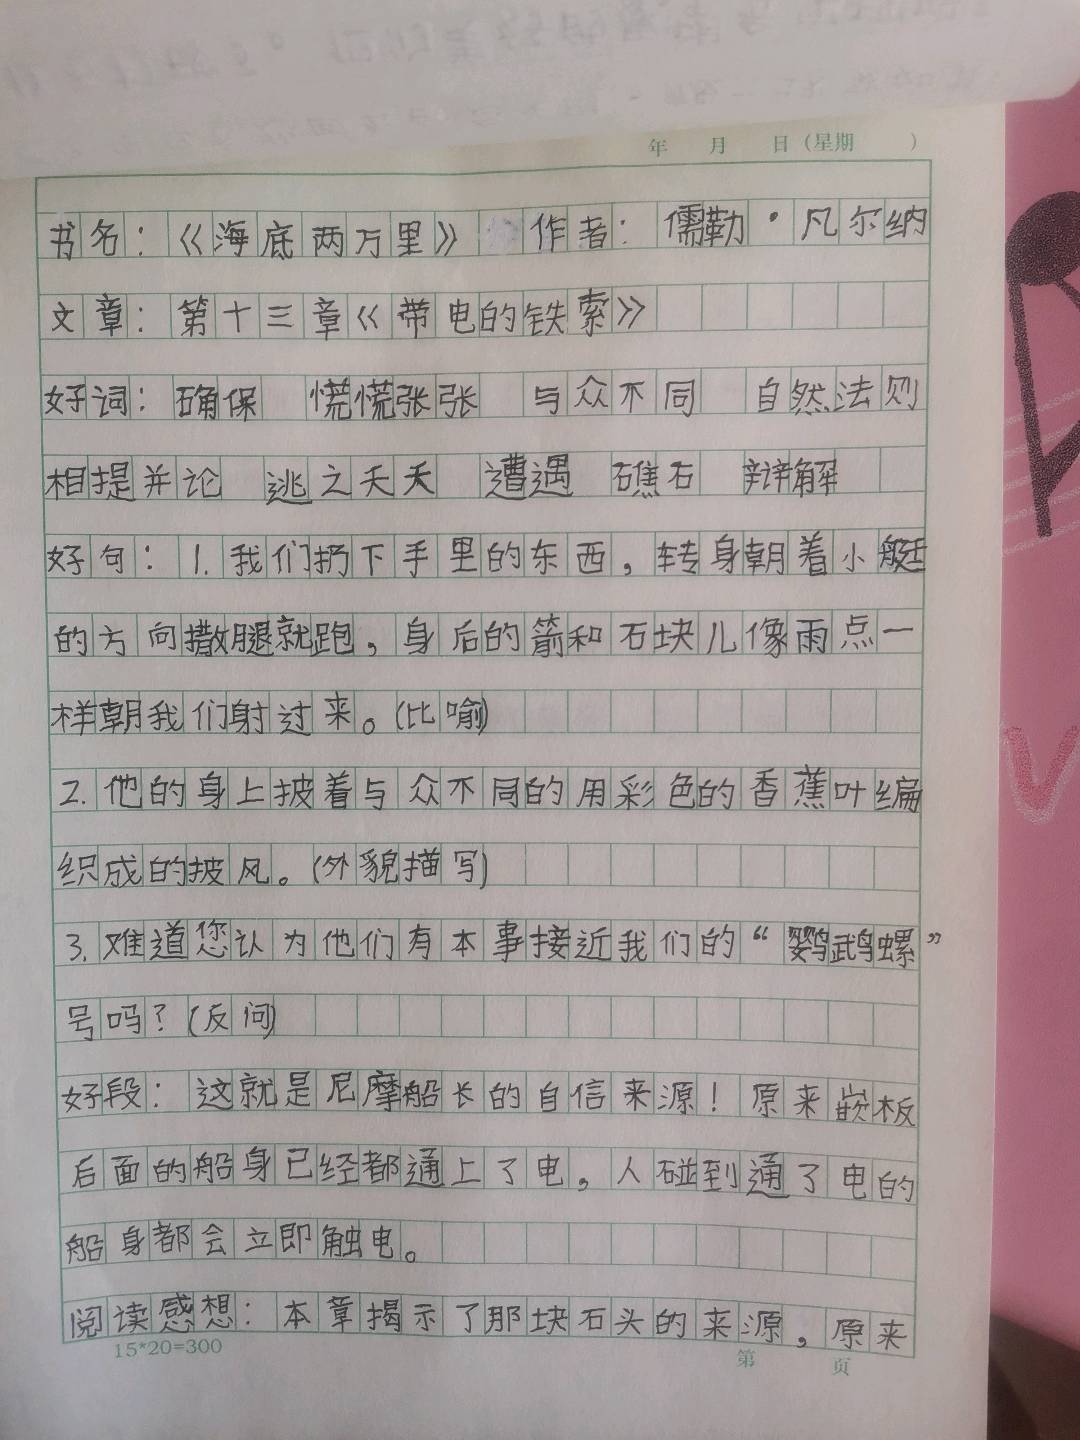 年 月 日（星期 ）
书名：《海底两万里》 作者：儒勒·凡尔纳
文章：第十三章《带电的铁索》
好词：确保 慌慌张张 与众不同 自然法则
相提并论 逃之夭夭 遭遇 礁石 辩解
好句：1.我们扔下手里的东西，转身朝着小艇
的方向撒腿就跑，身后的箭和石块儿像雨点一
样朝我们射过来。(比喻)
2.他的身上披着与众不同的用彩色的香蕉叶编
织成的披风。(外貌描写)
3.难道您认为他们有本事接近我们的“鹦鹉螺”
号吗？(反问)
好段：这就是尼摩船长的自信来源！原来嵌板
后面的船身已经都通上了电，人碰到通了电的
船身都会立即触电。
阅读感想：本章揭示了那块石头的来源，原来
15*20=300
第 页